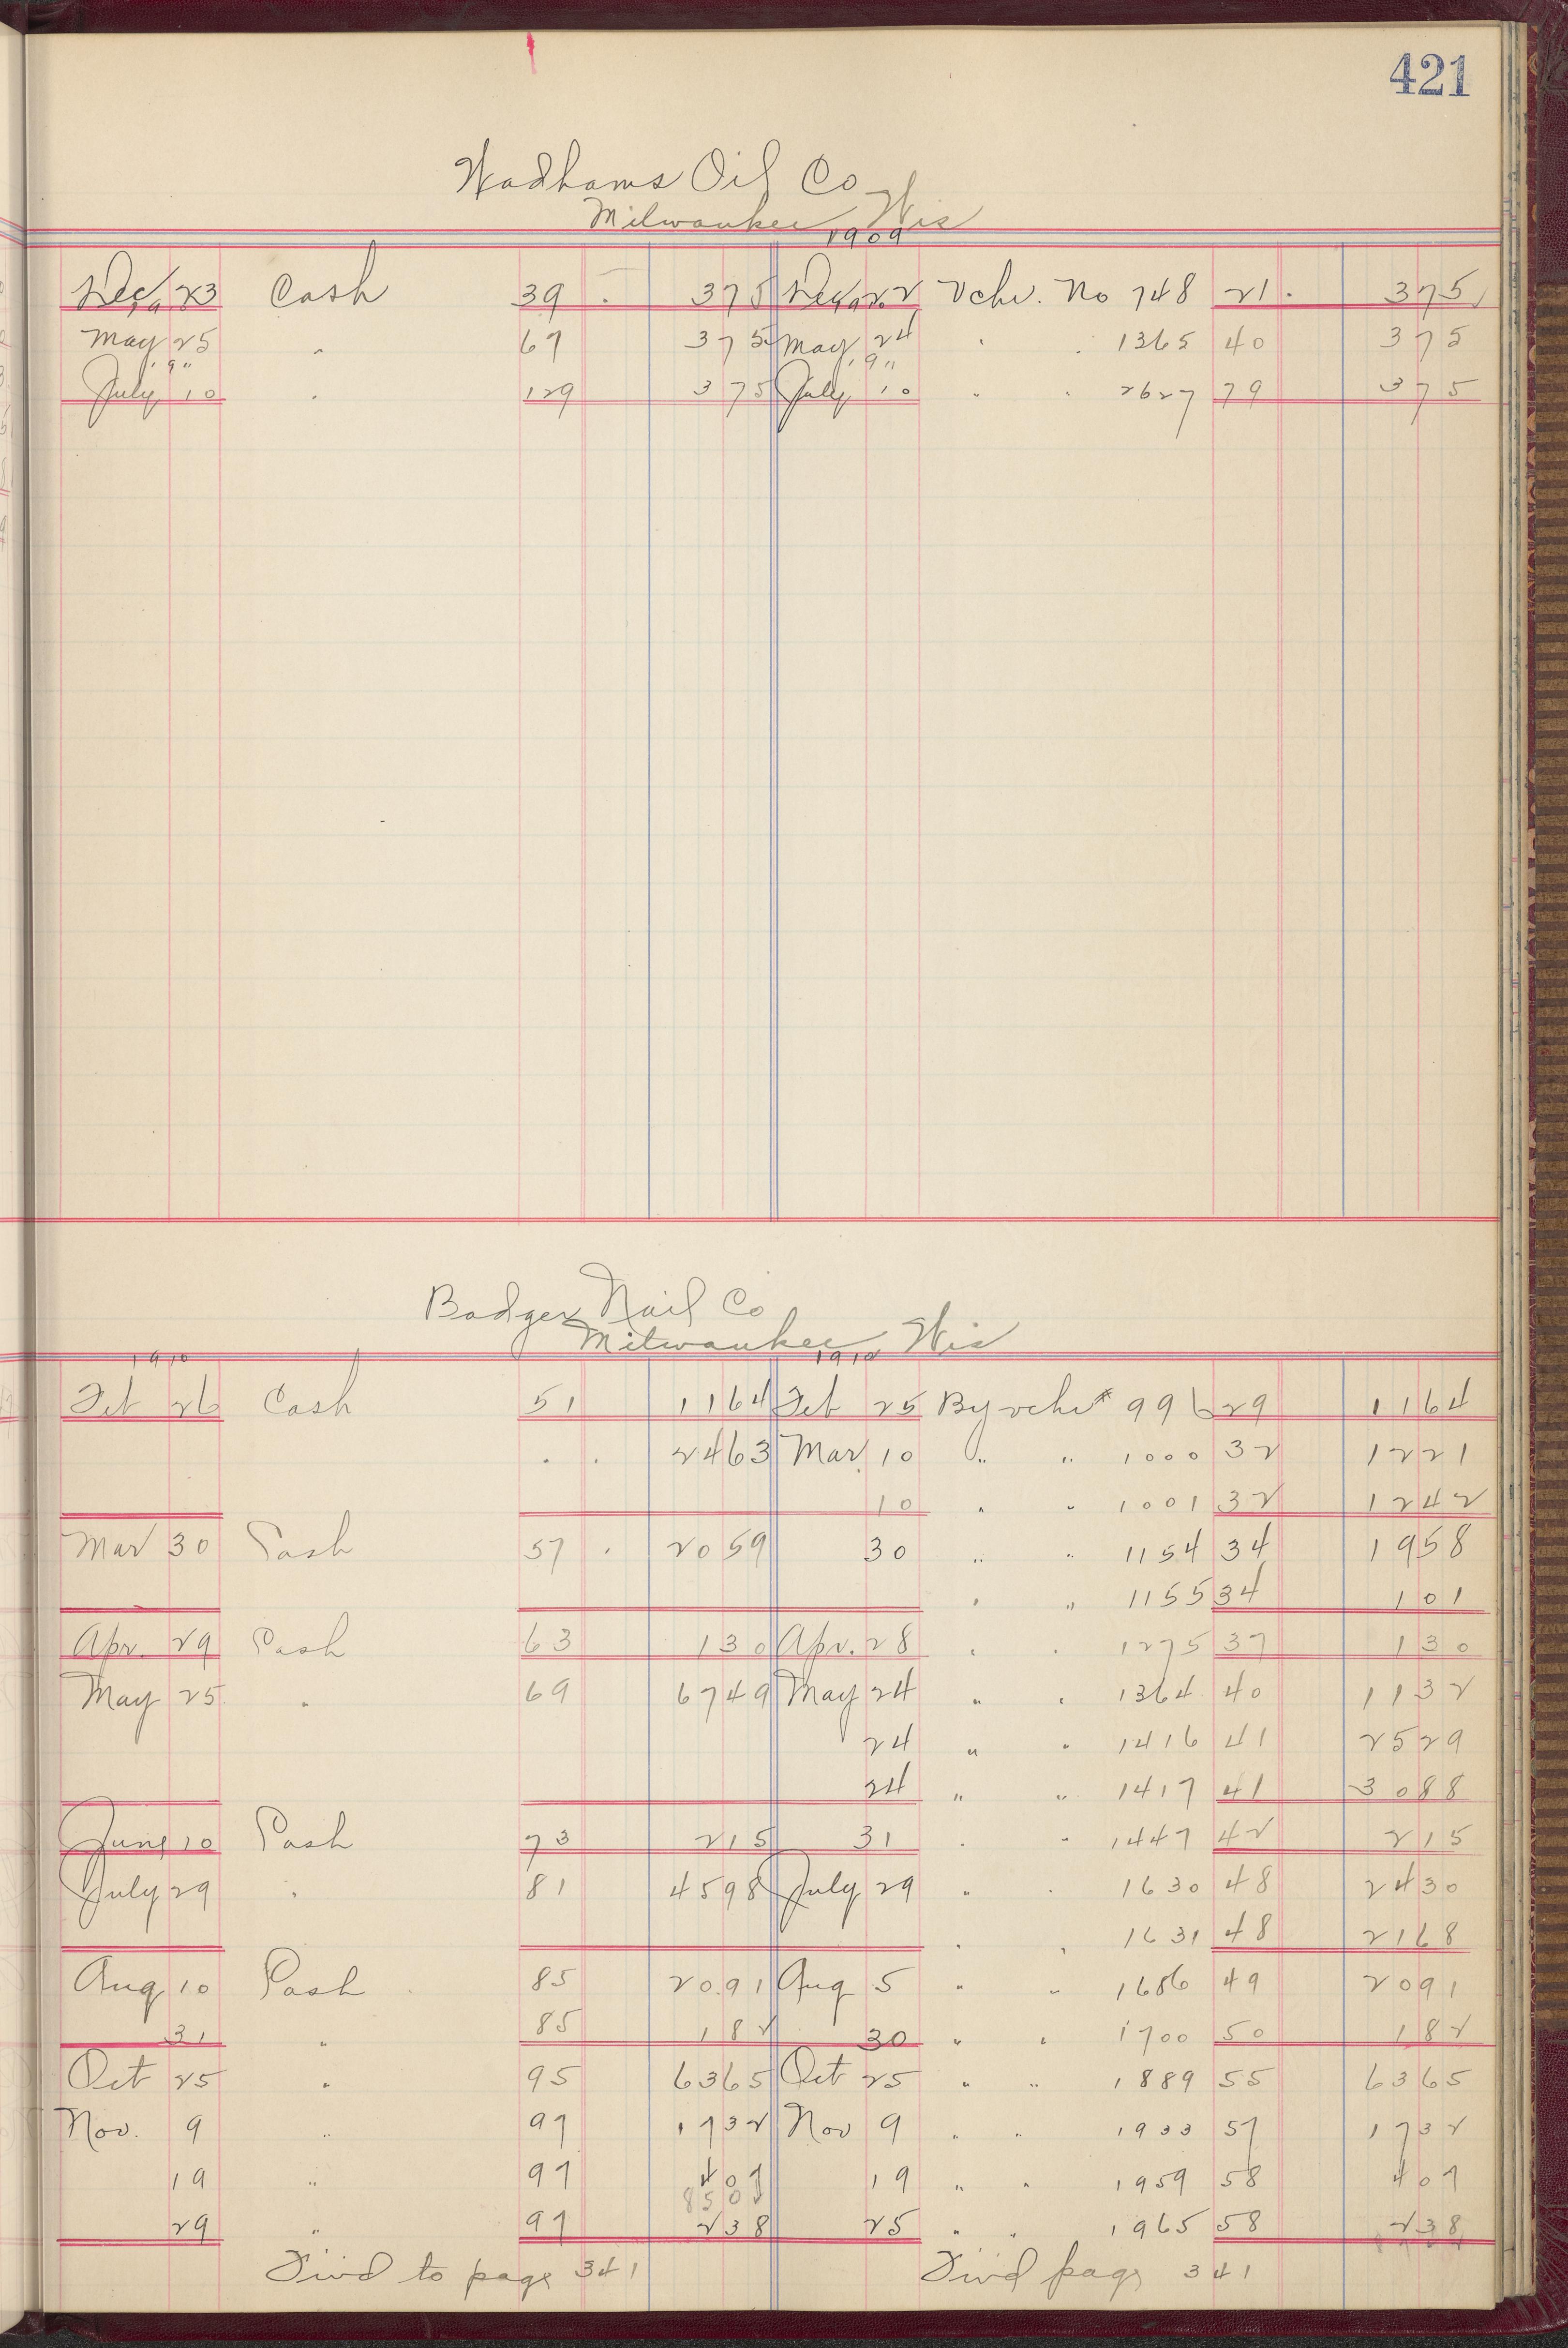 421
Wadhams Oil Co
Milwaukee Wis
1909
Dec 23 Cash 39 375 Dec 22 Vchr. No 748 21 375
May 25 " 67 375 May 24 " " 1365 40 375
1911 1911
July 10 " 129 375 July 10 " " 2627 79 375
Badger Nail Co
Milwaukee Wis
1910 1910
Feb 26 Cash 51 1164 Feb 25 By vchr # 996 29 1164
" " 2463 Mar. 10 " " 1000 32 1221
10 " " 1001 32 1242
Mar 30 Cash 57 2059 30 " " 1154 34 1958
" " 1155 34 101
Apr. 29 Cash 63 130 Apr. 28 " " 1275 37 130
May 25 " 69 6749 May 24 " " 1364 40 1132
24 " " 1416 41 2529
24 " " 1417 41 3088
June 10 Cash 73 215 31 " " 1447 42 215
July 29 " 81 4598 July 29 " " 1630 48 2430
" " 1631 48 2168
Aug 10 Cash 85 2091 Aug 5 " " 1686 49 2091
31 " 85 182 30 " " 1700 50 182
Oct 25 " 95 6365 Oct 25 " " 1889 55 6365
Nov. 9 " 97 1732 Nov 9 " " 1933 57 1732
19 " 97 407 19 " " 1959 58 407
29 " 97 238 25 " " 1965 58 238
Fwd to page 341 Fwd page 341